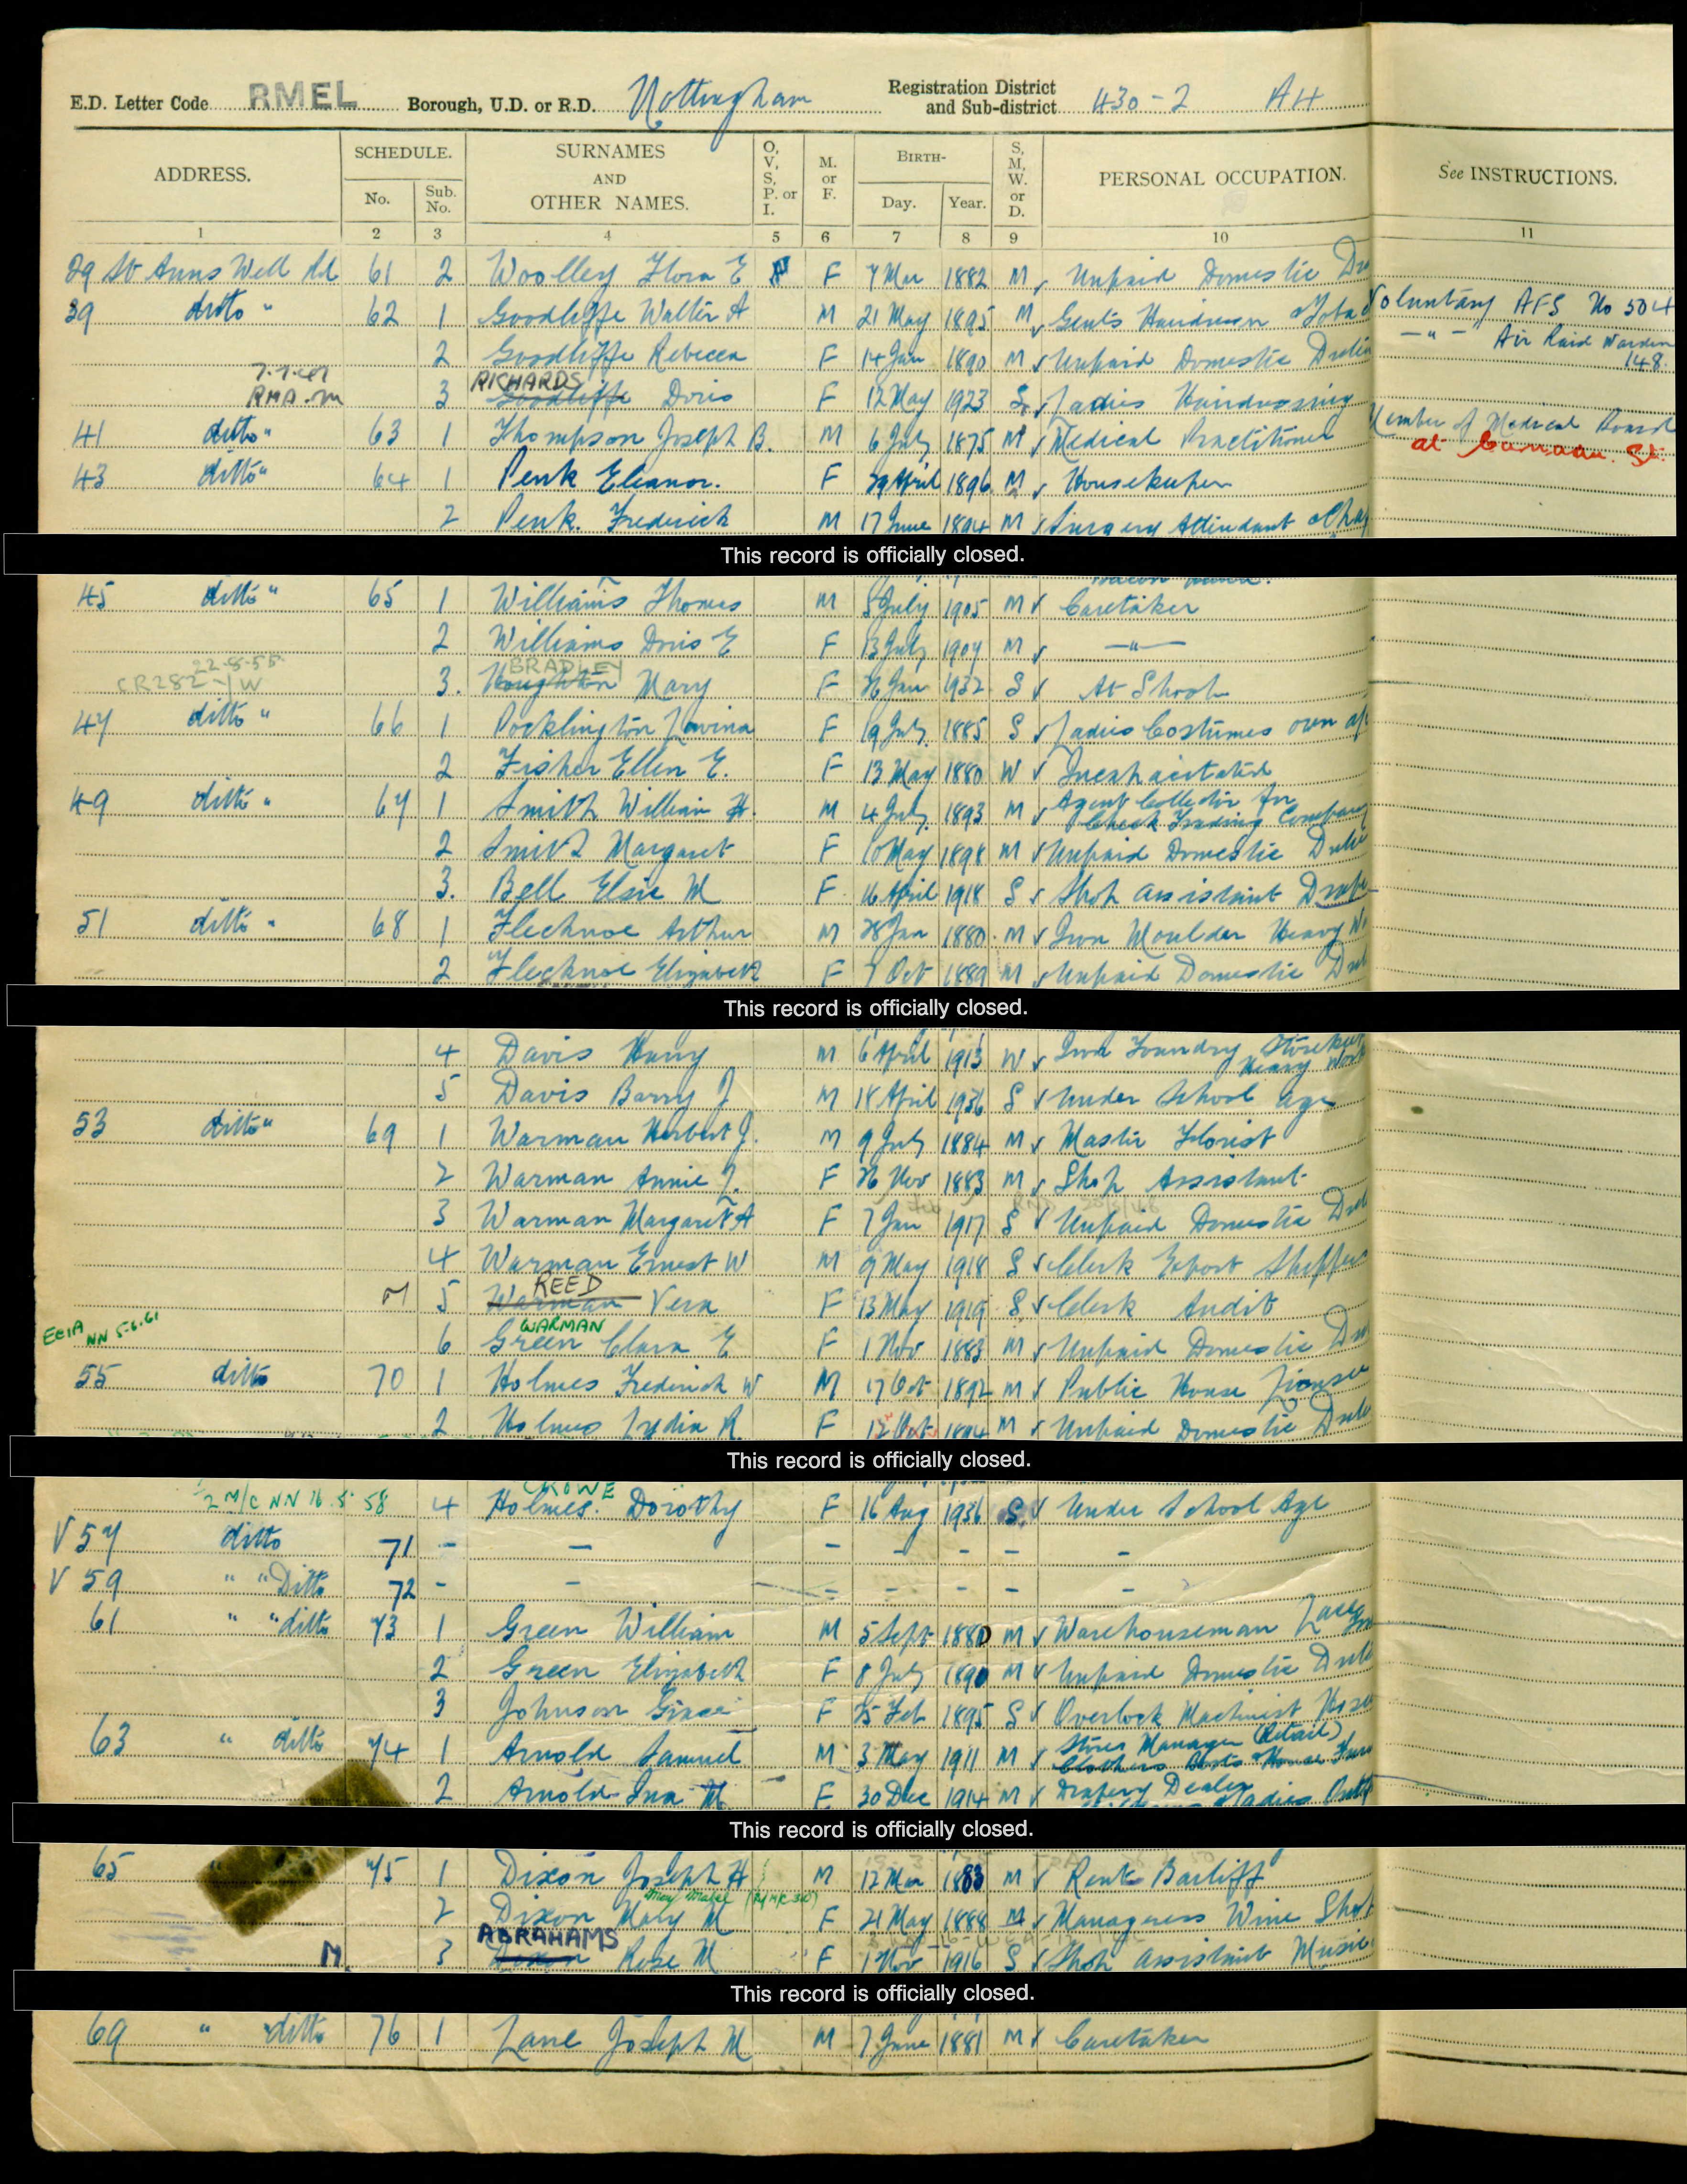 E.D. Letter Code RMEL Borough, U.D. or R.D. Nottingham Registration District and Sub-district 430-2 AH
ADDRESS. SCHEDULE. No. Sub. No. SURNAMES AND OTHER NAMES. O, V, S, P. or I. M. or F. BIRTH- Day. Year. S, M, W. or D. PERSONAL OCCUPATION. See INSTRUCTIONS.
1 2 3 4 5 6 7 8 9 10 11
29 St Anns Well Rd 61 2 Woolley Flora E F 7 Mar 1882 M Unpaid Domestic
39 ditto " 62 1 Goodliffe Walter A M 21 May 1895 M Gents Hairdresser Voluntary AFS No 504
2 Goodliffe Rebecca F 14 Jan 1890 M Unpaid Domestic Duties -"- Air Raid Warden 148.
7.7.41
RMA.M
RICHARDS
3 Goodliffe Doris F 12 May 1923 S Ladies Hairdressing
41 ditto " 63 1 Thompson Joseph B. M 6 July 1875 M Medical Practitioner Member of Medical Board
at
43 ditto " 64 1 Penk Eleanor. F 29 April 1896 M Housekeeper
2 Penk. Frederick M 17 June 1894 M Surgery Attendant
This record is officially closed.
45 ditto " 65 1 Williams Thomas M 8 July 1905 M Caretaker
2 Williams Doris E F 13 July 1904 M -"-
22.8.55
CR282 -/W
BRADLEY
3. Houghton Mary F 26 Jan 1932 S At School
47 ditto " 66 1 Pocklington Lavina F 19 July 1885 S Ladies Costumes own
2 Fisher Ellen E. F 13 May 1880 W Incapacitated
49 ditto " 67 1 Smith William H. M 4 July 1893 M Agent Collector for
Check Trading Company
2 Smith Margaret F 10 May 1898 M Unpaid Domestic Duties
3. Bell Elsie M F 16 April 1918 S Shop Assistant
51 ditto " 68 1 Flecknoe Arthur M 28 Jan 1880 M Iron Moulder Heavy
2 Flecknoe Elizabeth F 7 Oct 1889 M Unpaid Domestic
This record is officially closed.
4 Davis Harry M 6 April 1913 W Iron Foundry
Heavy
5 Davis Barry J M 18 April 1936 S Under School age
53 ditto " 69 1 Warman Herbert J. M 9 July 1884 M Master Florist
2 Warman Annie J. F 26 Nov 1883 M Shop Assistant
3 Warman Margaret A F 7 Jan 1917 S Unpaid Domestic
4 Warman Ernest W M 9 May 1918 S Clerk Export
REED
M 5 Warman Vera F 13 May 1919 S Clerk Audit
NN 5.6.61
WARMAN
6 Green Clara E F 1 Nov 1883 M Unpaid Domestic
55 ditto 70 1 Holmes Frederick W M 17 Oct 1892 M Public House
2 Holmes Lydia R. F 12 Oct 1894 M Unpaid Domestic
This record is officially closed.
2 M/C NN 16.5.58
CROWE
4 Holmes. Dorothy F 16 Aug 1936 S Under School Age
V 57 ditto 71 - - - - - - -
V 59 " " Ditto 72 - - - - - - -
61 " " ditto 73 1 Green William M 5 Sept 1880 M Warehouseman Lace
2 Green Elizabeth F 8 July 1890 M Unpaid Domestic
3 Johnson Grace F 25 Feb 1895 S Overlock Machinist
63 " ditto 74 1 Arnold Samuel M 3 May 1911 M Stores Manager (Retail)
Clothers Boots House
2 Arnold Ina M. F 30 Dec 1914 M Drapery Dealer
This record is officially closed.
65 75 1 Dixon Joseph H M 12 Mar 1883 M Rent Bailiff
May Mabel
2 Dixon Mary M F 21 May 1888 M Manageress Wine Shop
ABRAHAMS
M. 3 Dixon Rose M F 1 Nov 1916 S Shop assistant Music
This record is officially closed.
69 " ditto 76 1 Lane Joseph M M 7 June 1881 M Caretaker